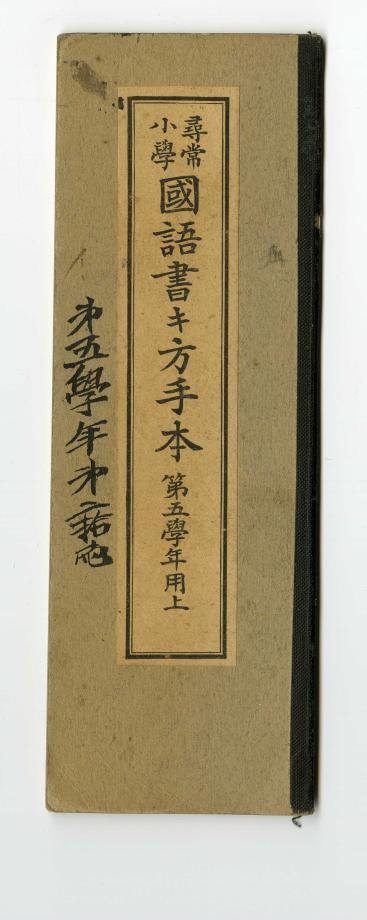 尋常
小學
國語書キ方手本 第五學年用上
第五學年第二拾